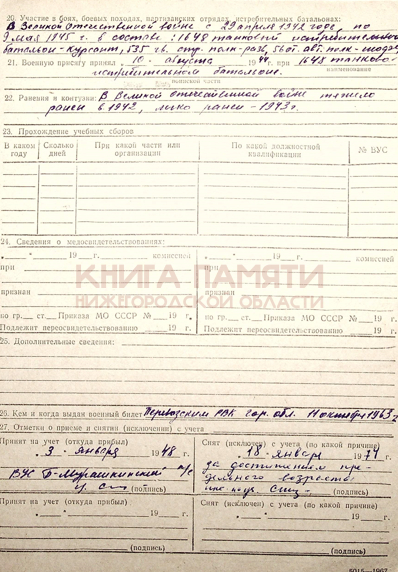 20. Участие в боях, боевых походах, партизанских отрядах, истребительных батальонах:
В Великой Отечественной войне с 29 апреля 1942 года, по
9 мая 1945 г. в составе: 1648 танковой истребительного
батальон-курсант, 535 гв. стр. полк-разв, 56 от. авт. полк-шофер
21. Военную присягу принял " 10 " августа 19 г. при 1648 танково-
наименование
истребительном батальоне.
воинской части
22. Ранения и контузии: В Великой отечественной войне тяжело
ранен в 1942, легко ранен - 1943 г.
23. Прохождение учебных сборов
В каком году
Сколько дней
При какой части или организации
По какой должностной квалификации
№ ВУС
24. Сведения о медосвидетельствованиях:
" " 19 г. комиссией
" " 19 г. комиссией
при
при
признан
признан
по гр. ст. Приказа МО СССР № 19 г.
по гр. ст. Приказа МО СССР № 19 г.
Подлежит переосвидетельствованию 19 г.
Подлежит переосвидетельствованию 19 г.
КНИГА ПАМЯТИ
НИЖЕГОРОДСКОЙ ОБЛАСТИ
25. Дополнительные сведения:
26. Кем и когда выдан военный билет Перевозским РВК гор. обл. 11 октября 1963 г
27. Отметки о приеме и снятии (исключении) с учета
Принят на учет (откуда прибыл)
" 3 " января 1948 г.
ВУС Б-Мурашкинский
(подпись)
Снят (исключен) с учета (по какой причине)
" 18 " января 1971 г.
за достижением пре-
дельного возраста
(подпись)
Принят на учет (откуда прибыл)
" " 19 г.
(подпись)
Снят (исключен) с учета (по какой причине)
" " 19 г.
(подпись)
5015—1967